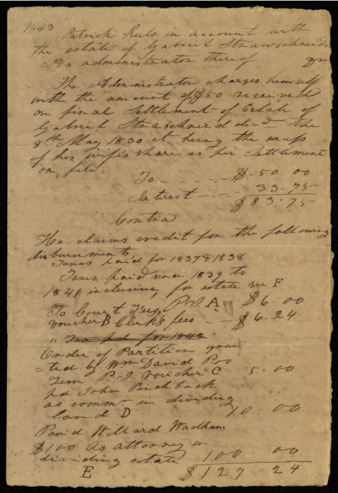 1843
Patrick in account with
the estate of Gabriel Strawschneider
as administrator thereof Dr
The Administrator charges himself
with the amount of $50 received
on final Settlement of Estate of
Gabriel the
8th May 1830 it being the
of his wifes share as per Settlement
on file.
To $50.00
Intrest 33.75
$83.75
Contra
He claims credit for the following
disburments
Taxes paid for 1837 & 1838
Taxes paid 1839 to
1840 inclusive, for estate F
To Court A $6.00
Voucher B Clerks fees $6.24
" Tax for 1842
Order of Partition
ted by Wm David
Voucher C 5.00
John Pinchback
as comms in dividing
land D 10 00
Paid Willard Wadhams
$100 As attorney in
dividing estate 100 00
E $127 24